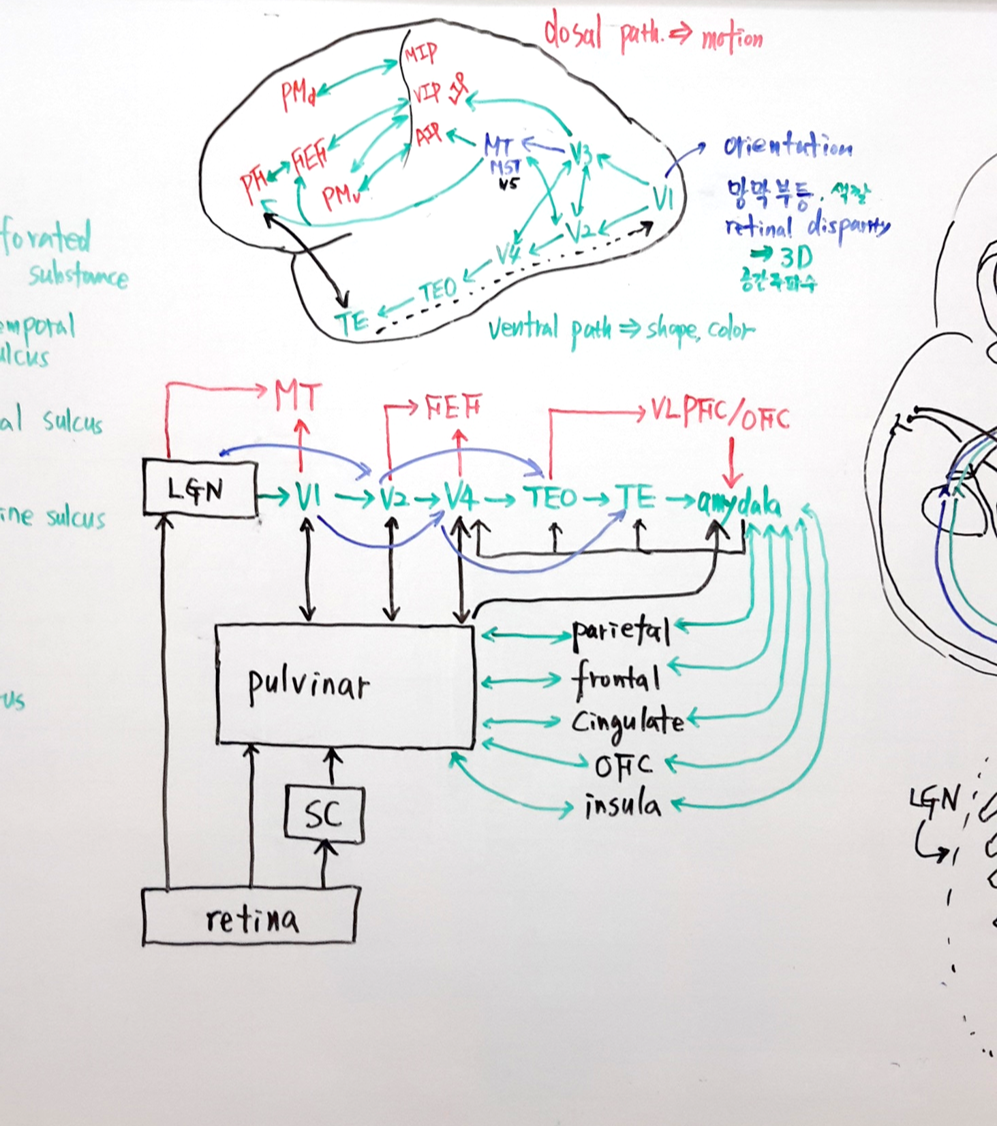 dosal path. ⇒ motion
MIP
PMd
VIP
AIP
FEF
PF
PMv
MT
MST
V5
V3
V1
V2
V4
TEO
TE
orientution
망막부등, 색깔
retinal disparity
⇒ 3D
공간주파수
ventral path ⇒ shape, color
forated
substance
emporal
ulcus
al sulcus
ine sulcus
us
MT
FEF
VLPFC/OFC
LGN → V1 → V2 → V4 → TEO → TE → amydala
pulvinar
parietal
frontal
Cingulate
OFC
insula
SC
retina
LGN